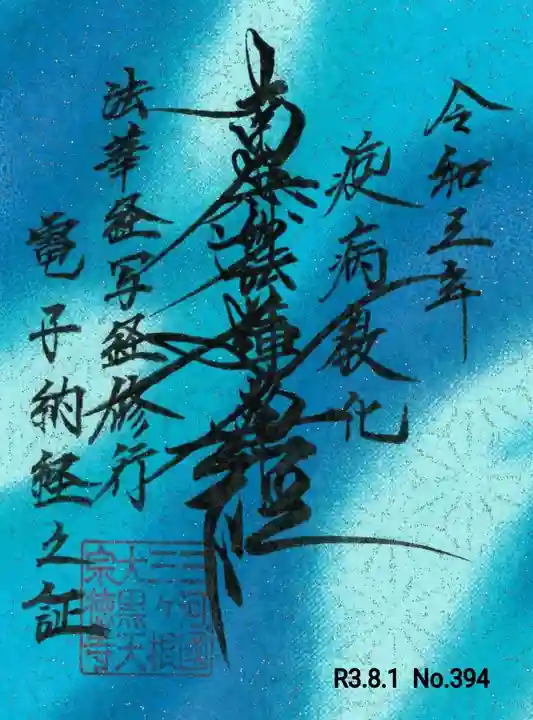 令和三年
疫病教化
南無妙法蓮華経
法華経写経修行
電子納経之証
三河國
三ヶ根
大黒天
宗徳寺
R3.8.1 No.394